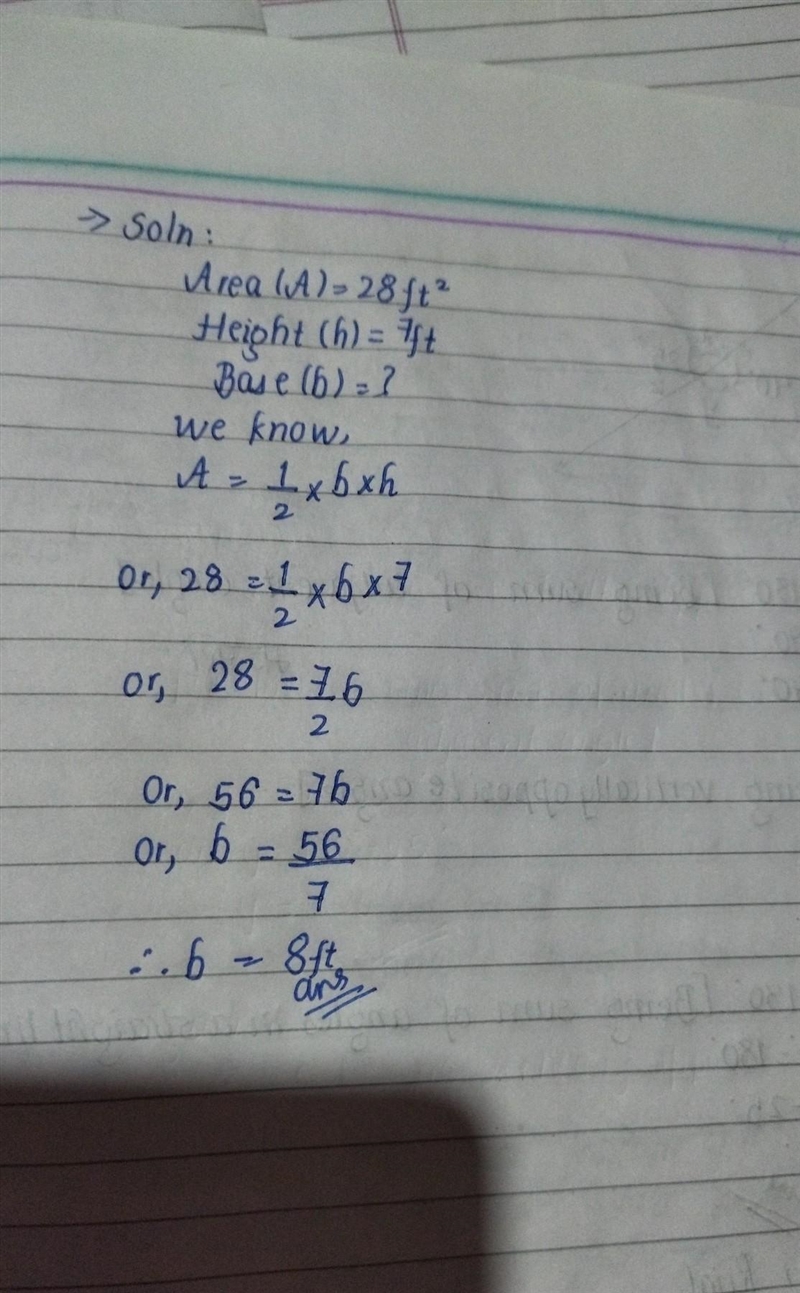 → Soln:
Area (A) = 28ft²
Height (h) = 7ft
Base (b) = ?
we know,
A = 1/2 × b × h
or, 28 = 1/2 × b × 7
or, 28 = 7/2 b
Or, 56 = 7b
Or, b = 56/7
∴ b = 8ft
ans